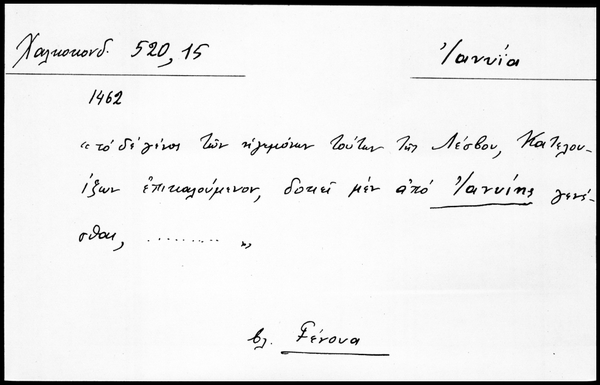 Χαλκοκονδ. 520, 15
Ἰαννία
1462
« τὸ δὲ γένος τῶν ἡγεμόνων τούτων τῆς Λέσβου, Κατελου-
ίξων ἐπικαλούμενον, δοκεῖ μὲν ἀπὸ Ἰαννίης γενέ-
σθαι, .......... »
βλ. Γένουα